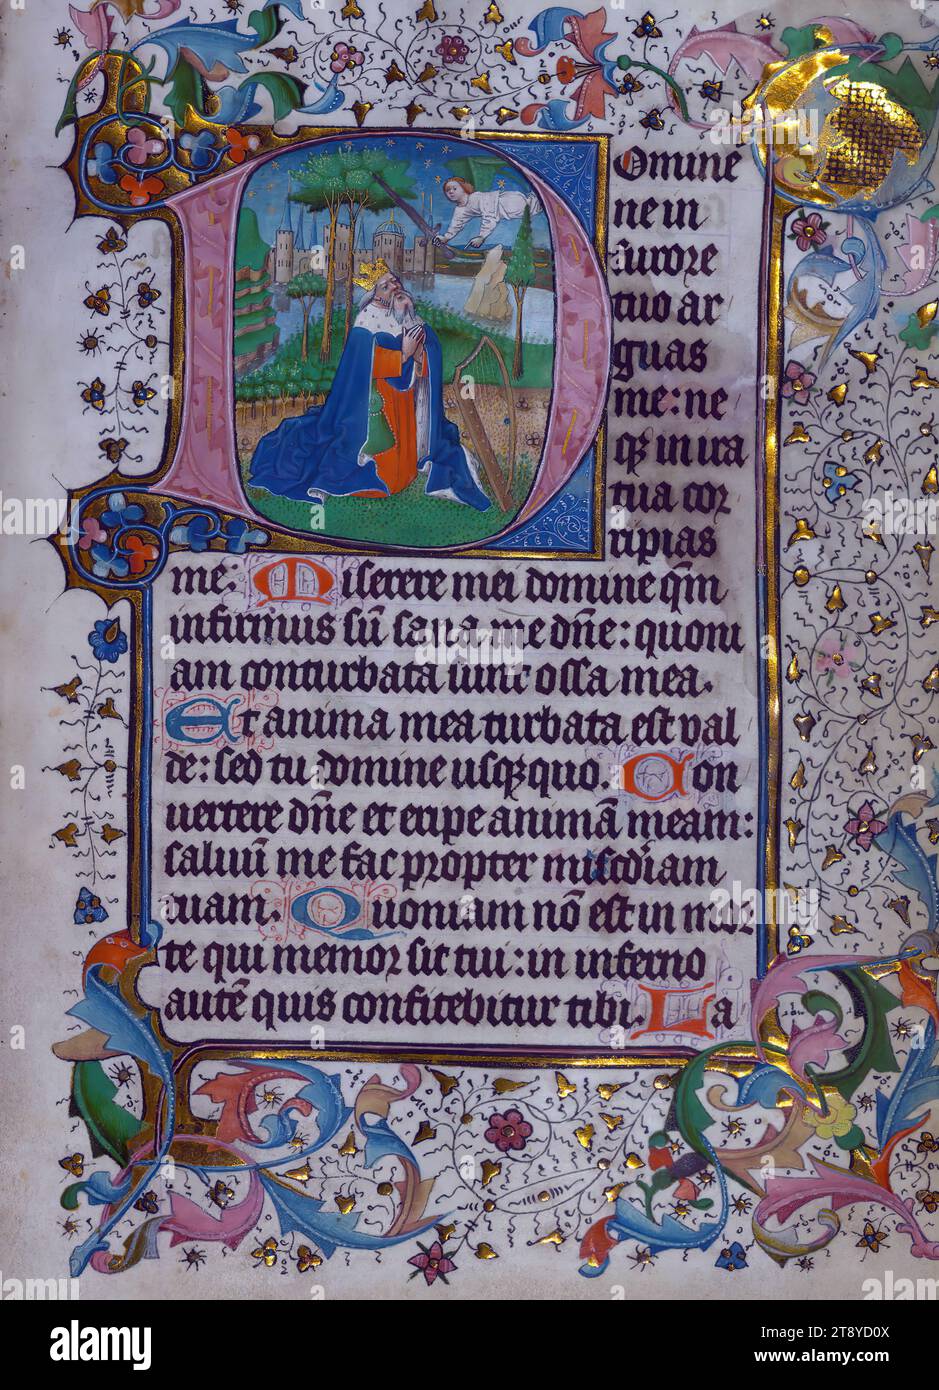 DOmine
ne in
furore
tuo ar
guas
me: ne
qꝫ in ira
tua cor
ripias
me: Miserere mei domine qm̄
infirmus sū sana me dn̄e: quoni
am conturbata sunt ossa mea.
Et anima mea turbata est val
de: sed tu domine usqꝫquo. Con
vertere dn̄e et eripe animā meam:
salvū me fac propter mis̄cdiam
tuam. Quoniam nō est in mor
te qui memor sit tui: in inferno
autē quis confitebitur tibi. La
alamy
Image ID: 2T8YD0X
www.alamy.com